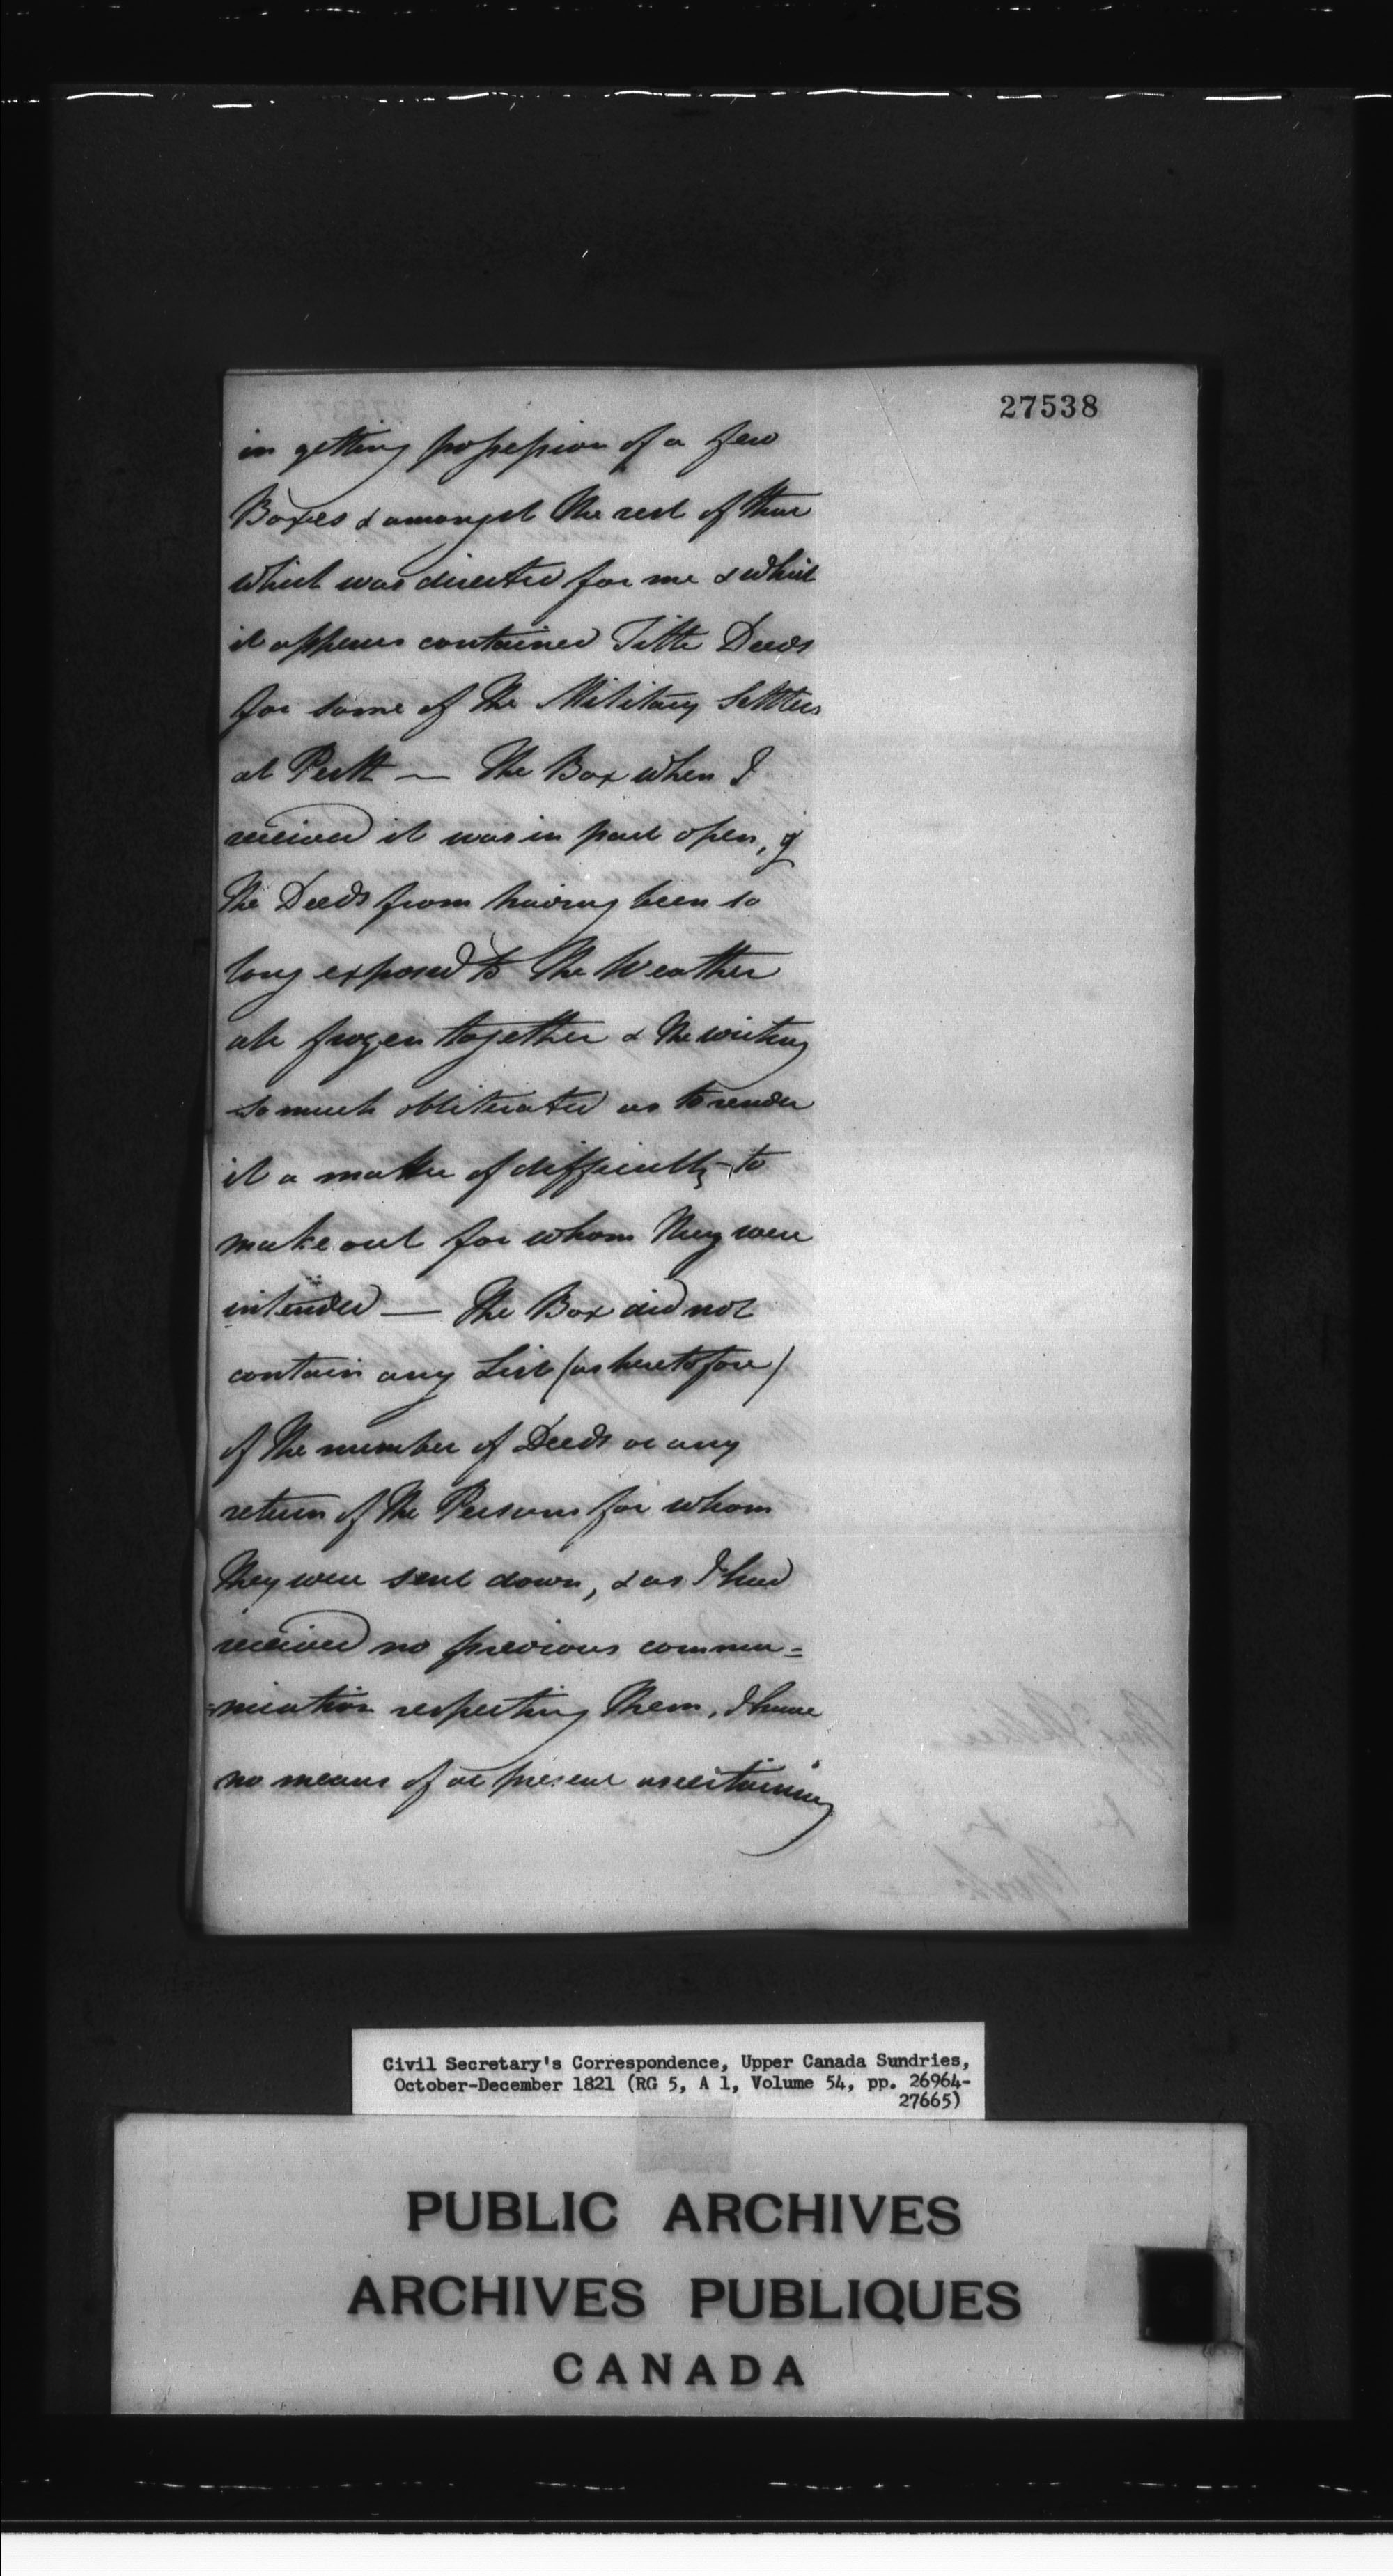 27538
in getting possession of a few
Boxes & amongst the rest of that
which was directed for me & which
it appears contained Title Deeds
for some of the Military Settlers
at Perth — The Box when I
received it was in part open, &
the Deeds from having been so
long exposed to the Weather
are frozen together & the writing
so much obliterated as to render
it a matter of difficulty to
make out for whom they were
intended — The Box did not
contain any List (as heretofore)
of the number of Deeds or any
return of the Persons for whom
they were sent down, & as I had
received no previous commu=
=nication respecting them, I have
no means of at present ascertaining
Civil Secretary's Correspondence, Upper Canada Sundries,
October-December 1821 (RG 5, A 1, Volume 54, pp. 26964-
27665)
PUBLIC ARCHIVES
ARCHIVES PUBLIQUES
CANADA